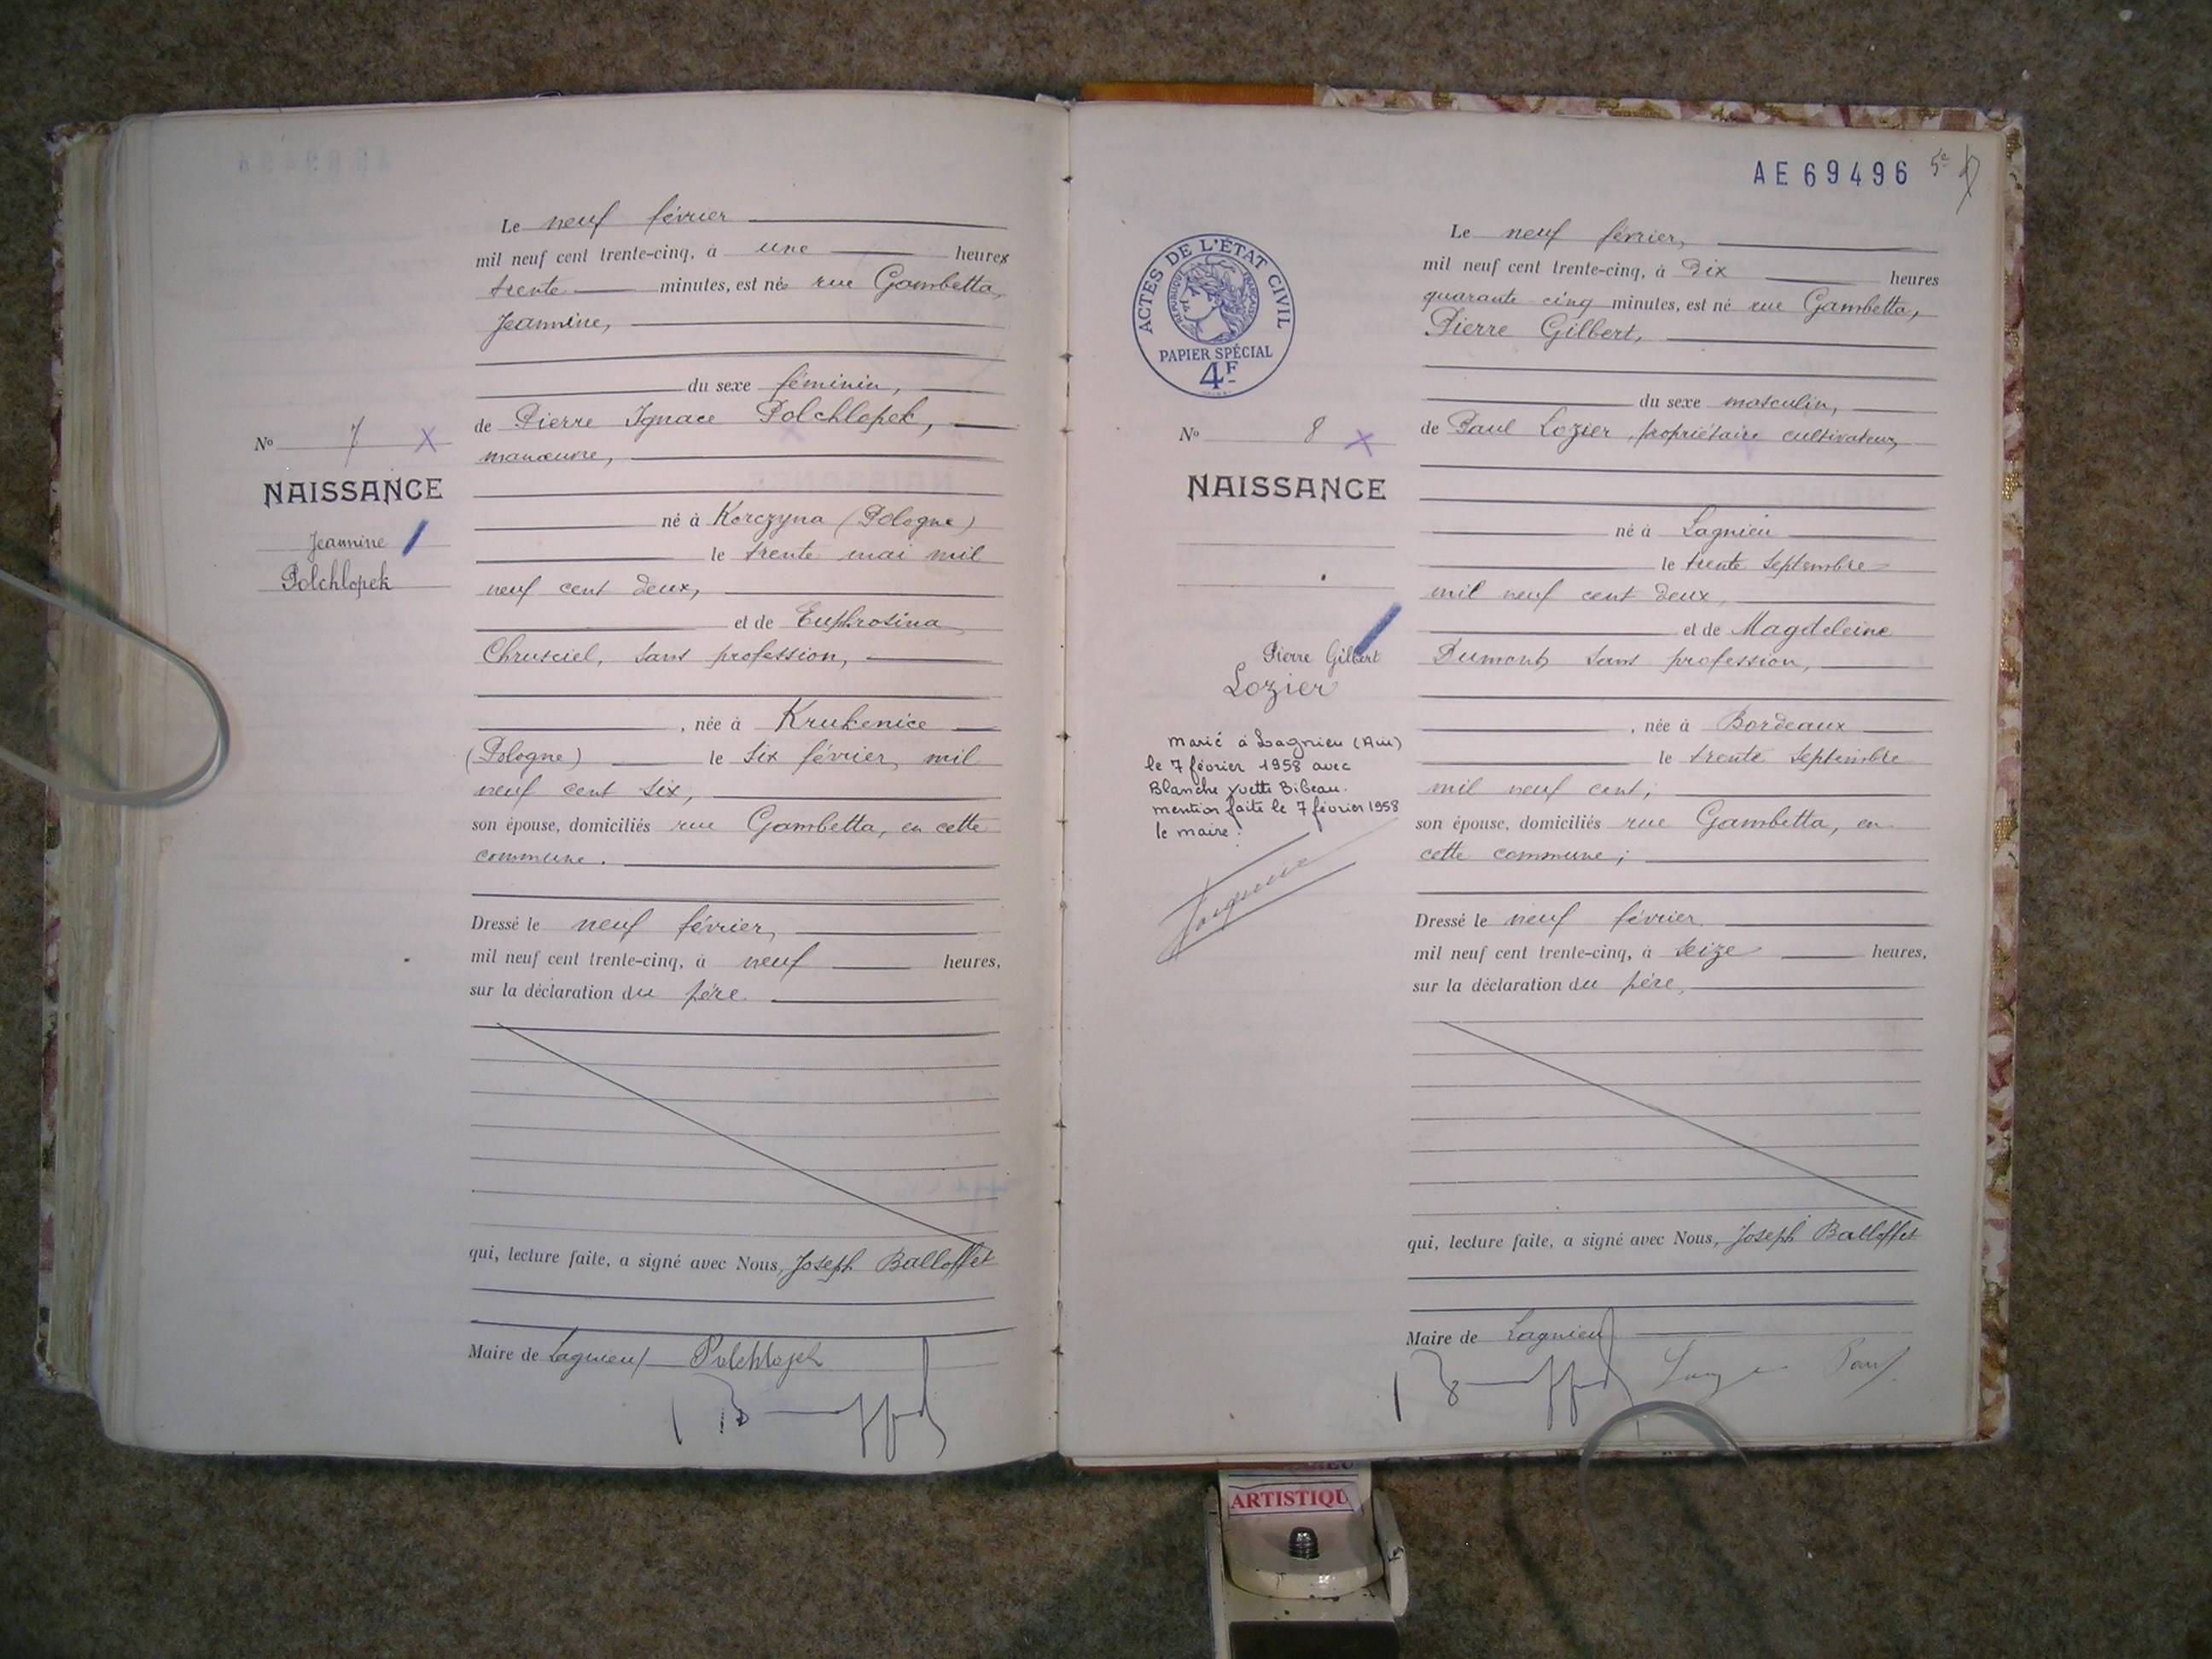 Le neuf février
mil neuf cent trente-cinq, à une heures
trente minutes, est née rue Gambetta,
Jeannine,
du sexe féminin,
de Pierre Ignace Polchlopek,
manœuvre,
né à Korczyna (Pologne)
le trente mai mil
neuf cent deux,
et de Euphrosina
Chrusciel, sans profession,
, née à Krukenice
(Pologne) le six février, mil
neuf cent six,
son épouse, domiciliés rue Gambetta, en cette
commune.
Dressé le neuf février,
mil neuf cent trente-cinq, à neuf heures,
sur la déclaration du père
qui, lecture faite, a signé avec Nous, Joseph Balloffet
Maire de Lagnieu Polchlopek
No 7 X
NAISSANCE
Jeannine
Polchlopek
AE69496 5e
ACTES DE L'ÉTAT CIVIL
RÉPUBLIQUE FRANÇAISE
PAPIER SPÉCIAL
4F
No 8 X
NAISSANCE
Pierre Gilbert
Lozier
marié à Lagnieu (Ain)
le 7 février 1958 avec
Blanche Yvette Bibeau.
mention faite le 7 février 1958
le maire:
Le neuf février,
mil neuf cent trente-cinq, à dix heures
quarante cinq minutes, est né rue Gambetta,
Pierre Gilbert,
du sexe masculin,
de Paul Lozier, propriétaire cultivateur,
né à Lagnieu
le trente septembre
mil neuf cent deux,
et de Magdeleine
Dumont, sans profession,
, née à Bordeaux
le trente septembre
mil neuf cent;
son épouse, domiciliés rue Gambetta, en
cette commune;
Dressé le neuf février
mil neuf cent trente-cinq, à seize heures,
sur la déclaration du père,
qui, lecture faite, a signé avec Nous, Joseph Balloffet
Maire de Lagnieu
Paul
ARTISTIQU